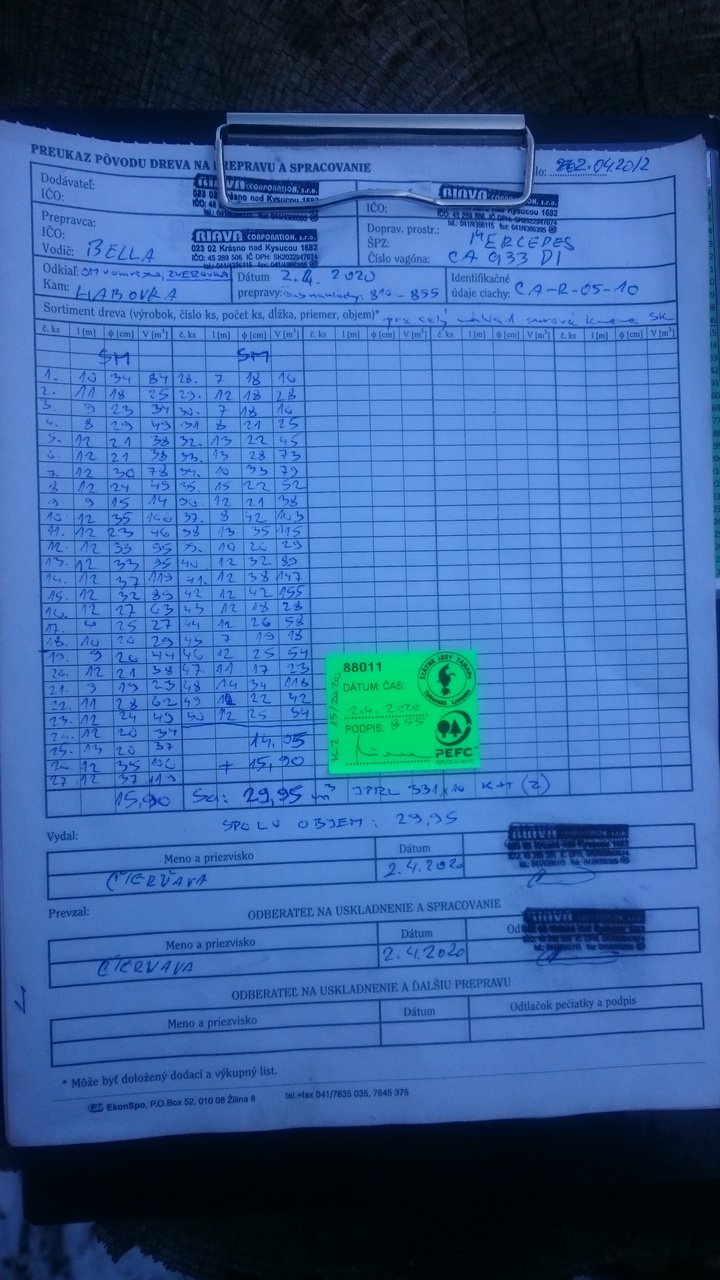 PREUKAZ PÔVODU DREVA NA PREPRAVU A SPRACOVANIE
Dodávateľ:
IČO:
RIAVA CORPORATION, s.r.o.
023 02 Krásno nad Kysucou 1682
IČO:
RIAVA CORPORATION, s.r.o.
Prepravca:
IČO:
Vodič: BELLA
RIAVA CORPORATION, s.r.o.
023 02 Krásno nad Kysucou 1682
IČO: 45 289 506 IČ DPH: SK2022947674
Doprav. prostr.: MERCEDES
ŠPZ:
Číslo vagóna: CA 933 DI
Odkiaľ: ZVEROVKA
Kam: HABOVKA
Dátum 2.4. 2020
prepravy: 810 - 855
Identifikačné
údaje ciachy: CA-R-05-10
Sortiment dreva (výrobok, číslo ks, počet ks, dĺžka, priemer, objem)*
č. ks l [m] ϕ [cm] V [m³] č. ks l [m] ϕ [cm] V [m³] č. ks l [m] ϕ [cm] V [m³] č. ks l [m] ϕ [cm] V [m³] č. ks l [m] ϕ [cm] V [m³]
SM SM
1. 10 34 84 28. 7 18 16
2. 11 18 25 29. 12 18 28
3. 9 23 34 30. 7 18 16
4. 8 29 49 31 8 21 25
5. 12 21 38 32. 13 22 45
6. 12 21 38 33. 13 28 73
7. 12 30 78 34. 10 35 79
8 12 24 49 35. 15 22 52
9 9 15 14 36 12 21 38
10. 12 35 106 37. 8 42 103
11. 12 23 46 38 13 35 115
12. 12 33 95 39. 10 20 29
13. 12 33 95 40 12 32 89
14. 12 37 119 41. 12 38 147
15. 12 32 89 42 12 42 155
16. 12 27 63 43 12 18 28
17. 25 27 44 12 26 58
18. 10 20 29 45 7 19 18
19. 9 26 44 46 12 25 54
20. 12 21 38 47. 11 17 23
21. 9 19 23 48 14 34 118
22. 11 28 62 49 12 22 42
23. 12 24 49 50 12 25 54
24. 12 20 34
25. 13 20 37 14,05
26. 12 35 106 + 15,90
27 12 37 119
15,90 Sa: 29,95 m³ JPRL 331
88011
DÁTUM, ČAS:
2.4. 2020
PODPIS: 855
ŠTÁTNE LESY TANAPU
TATRANSKÁ LOMNICA
PEFC
SPOLU OBJEM: 29,95
Vydal:
Meno a priezvisko Dátum
2.4.2020
Prevzal:
ODBERATEĽ NA USKLADNENIE A SPRACOVANIE
Meno a priezvisko Dátum
2.4.2020
ODBERATEĽ NA USKLADNENIE A ĎALŠIU PREPRAVU
Meno a priezvisko Dátum Odtlačok pečiatky a podpis
* Môže byť doložený dodací a výkupný list.
EkonSpo, P.O.Box 52, 010 08 Žilina 8 tel.+fax 041/7635 035, 7645 375